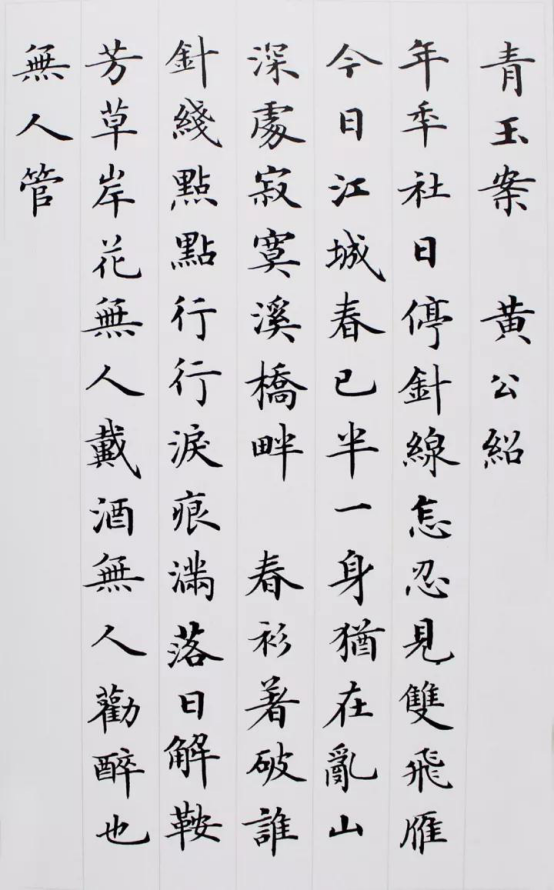 青玉案 黄公紹
年年社日停針線怎忍見雙飛雁
今日江城春已半一身猶在亂山
深處寂寞溪橋畔 春衫著破誰
針綫點點行行淚痕滿落日解鞍
芳草岸花無人戴酒無人勸醉也
無人管